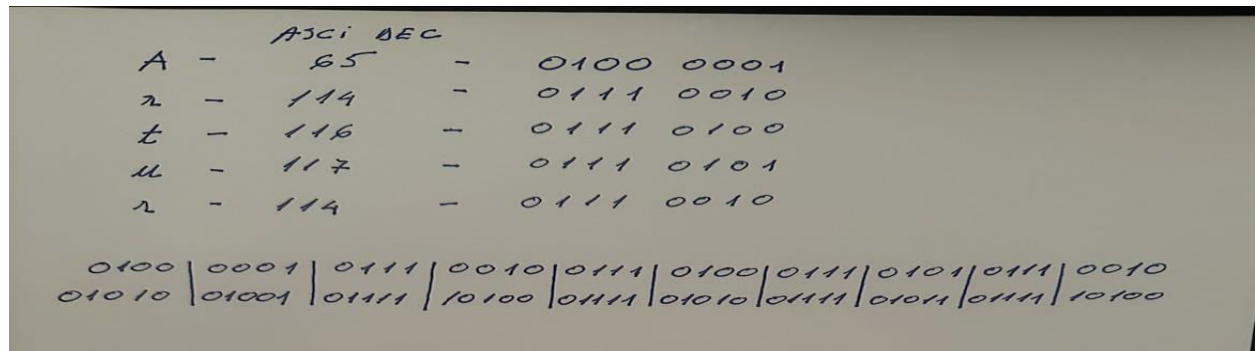 ASCi DEC
A - 65 - 0100 0001
r - 114 - 0111 0010
t - 116 - 0111 0100
u - 117 - 0111 0101
r - 114 - 0111 0010
0100 | 0001 | 0111 | 0010 | 0111 | 0100 | 0111 | 0101 | 0111 | 0010
01010 | 01001 | 01111 | 10100 | 01111 | 01010 | 01111 | 01011 | 01111 | 10100